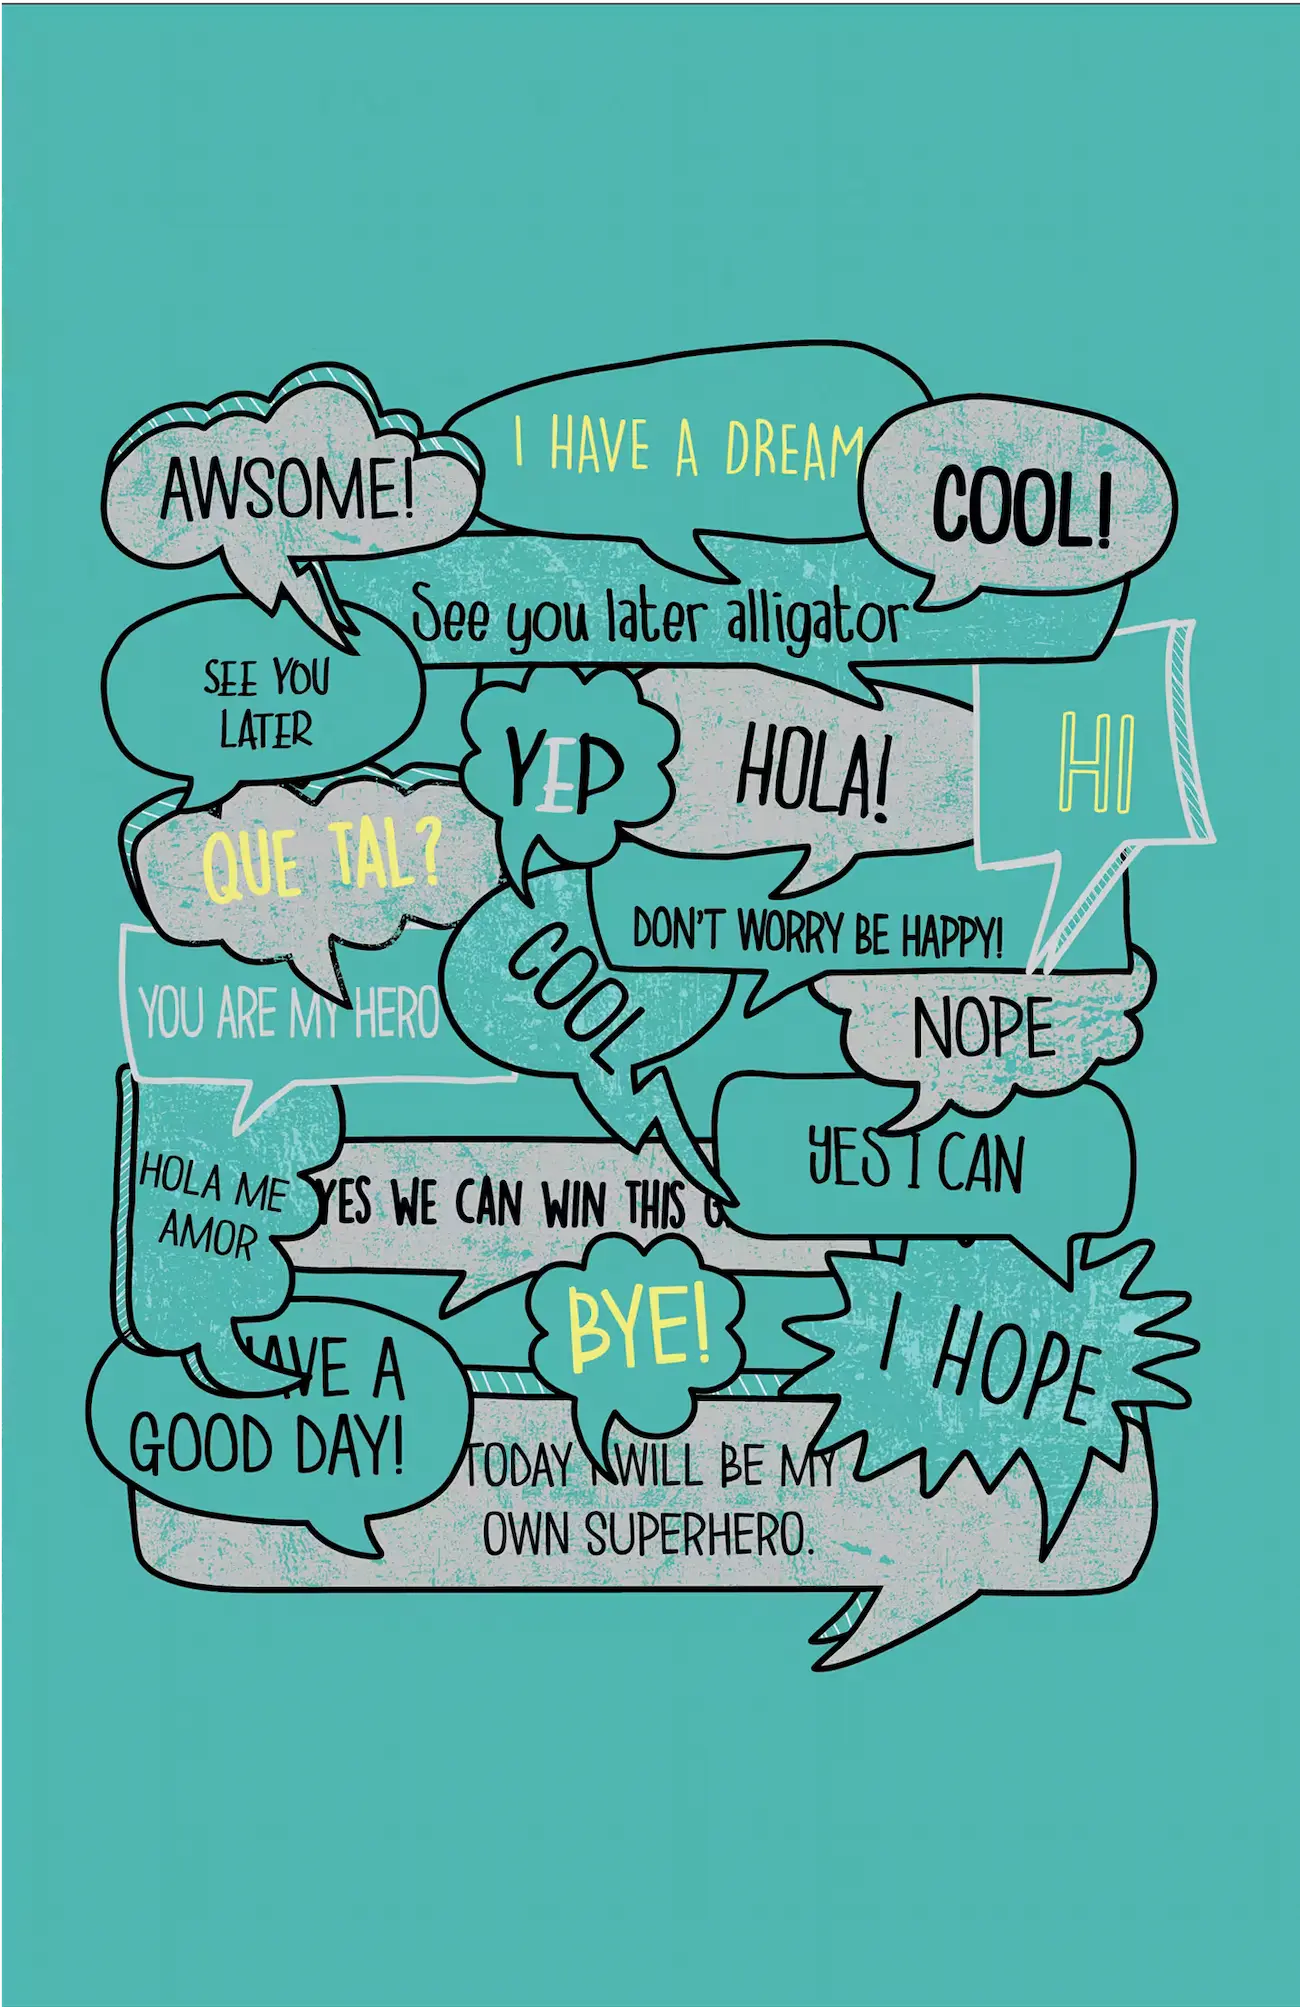 I HAVE A DREAM
AWSOME!
COOL!
See you later alligator
SEE YOU
LATER
YEP
HOLA!
HI
QUE TAL?
DON'T WORRY BE HAPPY!
COOL
YOU ARE MY HERO
NOPE
YES I CAN
HOLA ME
AMOR
YES WE CAN WIN THIS
BYE!
I HOPE
AVE A
GOOD DAY!
TODAY I WILL BE MY
OWN SUPERHERO.